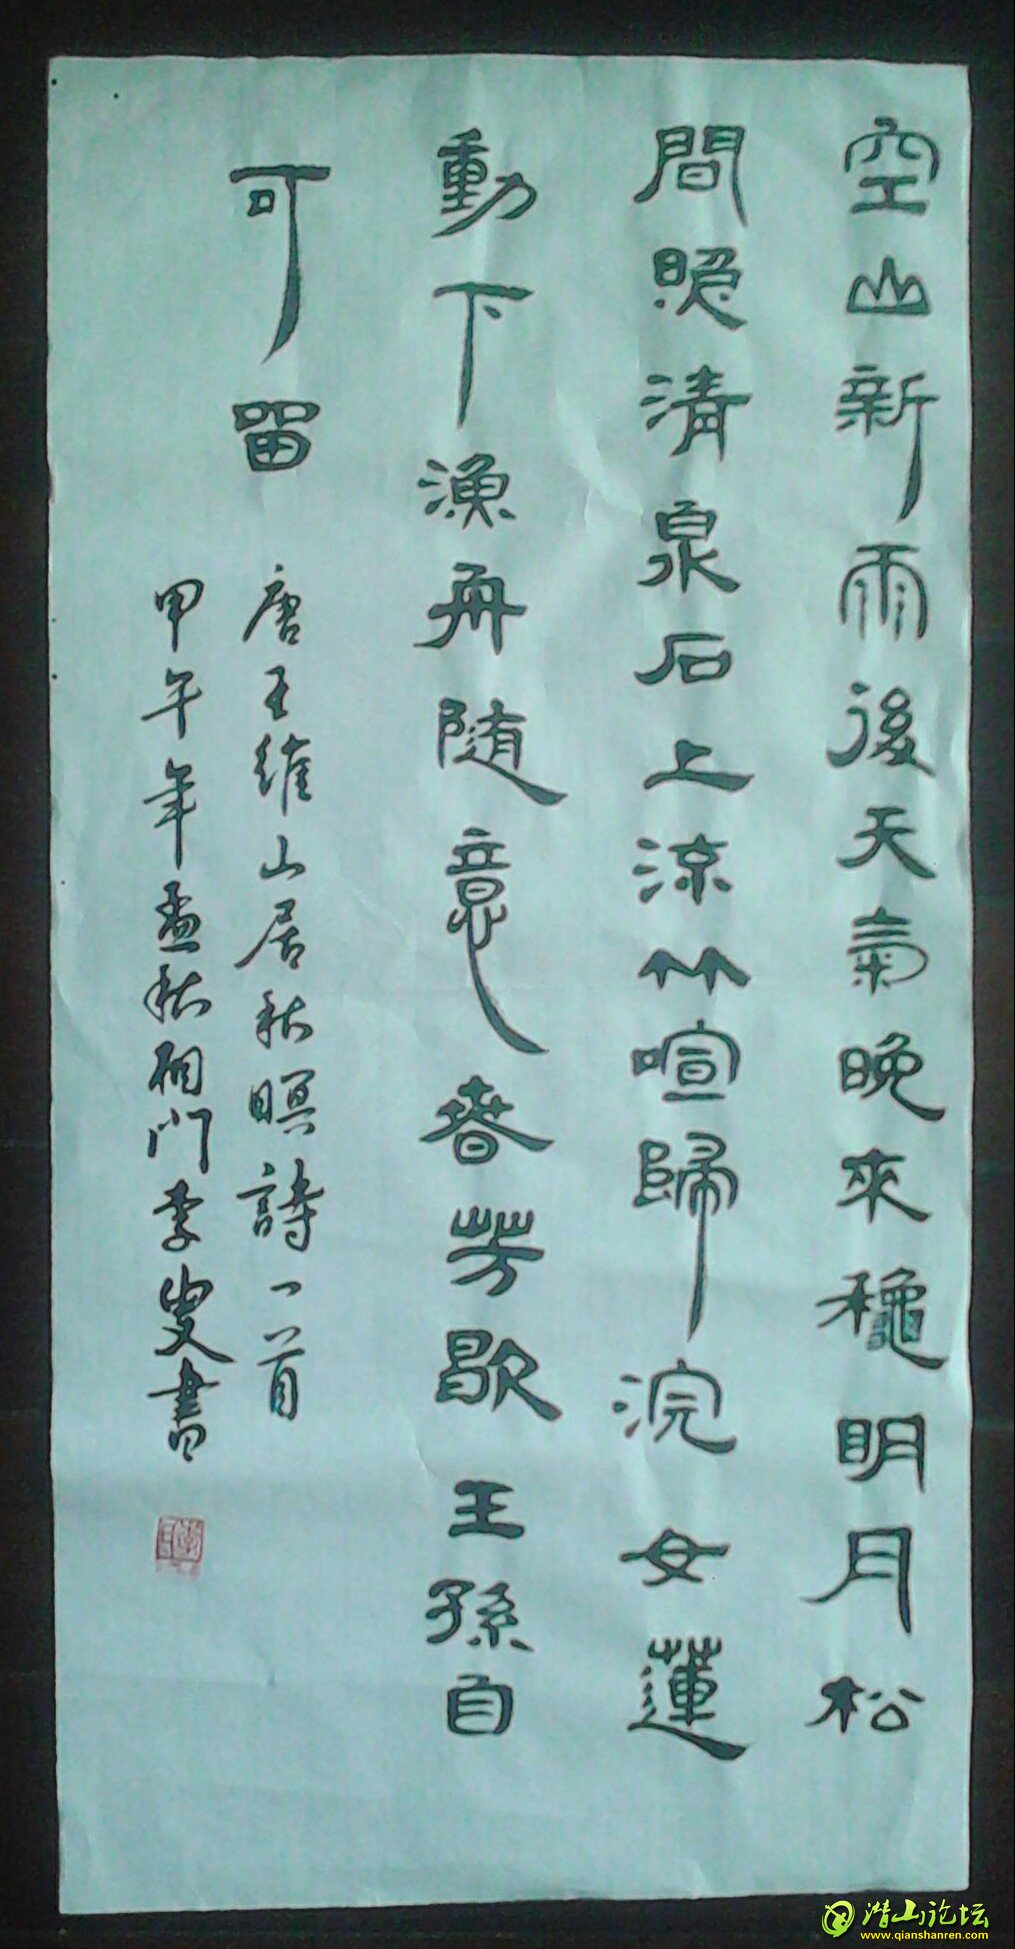 空山新雨後天氣晚來穐明月松
間照清泉石上流竹喧歸浣女蓮
動下漁舟随意春芳歇王孫自
可留
唐王維山居秋暝詩一首
甲午年孟秋桐門李叟書
潜山论坛
www.qianshanren.com